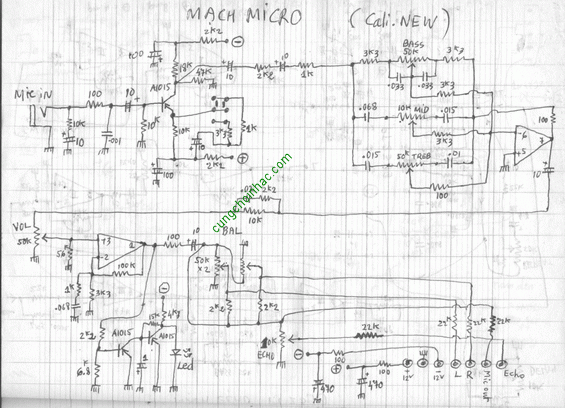 MACH MICRO (Cali.NEW)
2k2
100
Mic iN
100
10
A1015
18k
47k
10
2k2
10
1k
3k3
BASS
50k
3k3
.033
.033
3k3
.068
10k
MiD
.015
3k3
.015
50k
TREB
.01
100
100
6
5
7
10
10k
10
.001
10k
10k
10
3k3
1k
100
2k2
cungchoinhac.com
2k2
10k
VOL
50k
56k
+3
-2
1
100k
1k
.068
3k3
100
10
BAL
50k
x2
2k2
2k2
2k2
A1015
15k
4k7
A1015
6.8k
1
Led
10k
ECHO
22k
22k
22k
22k
100
100
470
470
12V
12V
L
R
Mic out
Echo